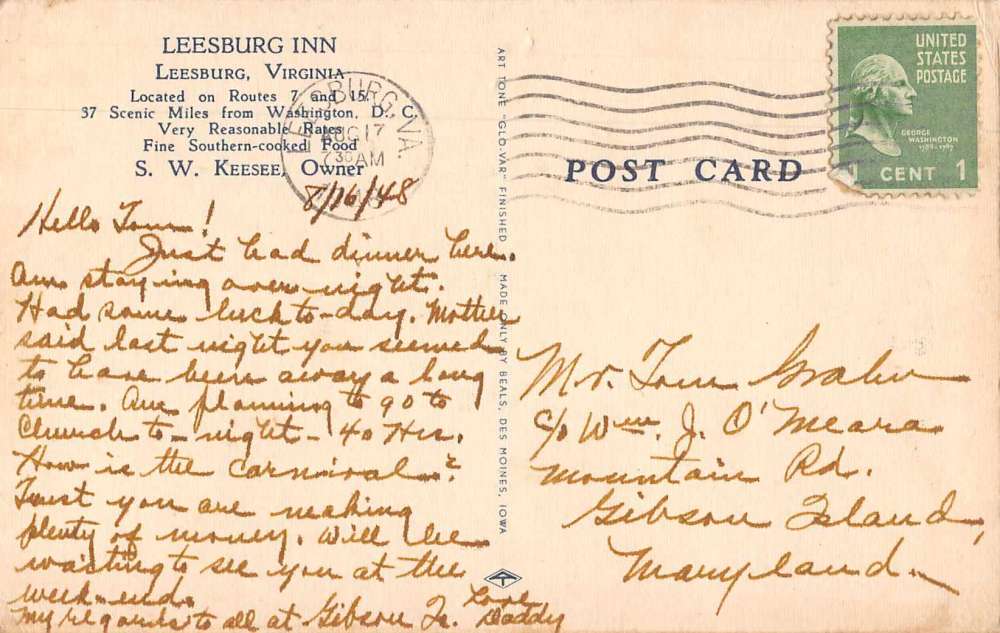 LEESBURG INN
LEESBURG, VIRGINIA
Located on Routes 7 and 15.
37 Scenic Miles from Washington, D. C.
Very Reasonable Rates
Fine Southern-cooked Food
S. W. KEESEE, Owner
LEESBURG, VA.
AUG 17
7 30 AM
8/16/48
Hello Tom!
Just had dinner here.
Am staying over night.
Had some luck to-day. Mother
said last night you seemed
to have been away a long
time. Am planning to go to
Church to-night - 40 Hrs.
How is the carnival?
Trust you are making
plenty of money. Will be
waiting to see you at the
week-end.
My regards to all at Gibson Is. Love
Daddy
ART TONE "GLO-VAR" FINISHED MADE ONLY BY BEALS, DES MOINES, IOWA
UNITED
STATES
POSTAGE
GEORGE
WASHINGTON
1789-1797
1 CENT 1
POST CARD
Mr. Tom
c/o Wm. J. O'Meara
Mountain Rd.
Gibson Island,
Maryland.